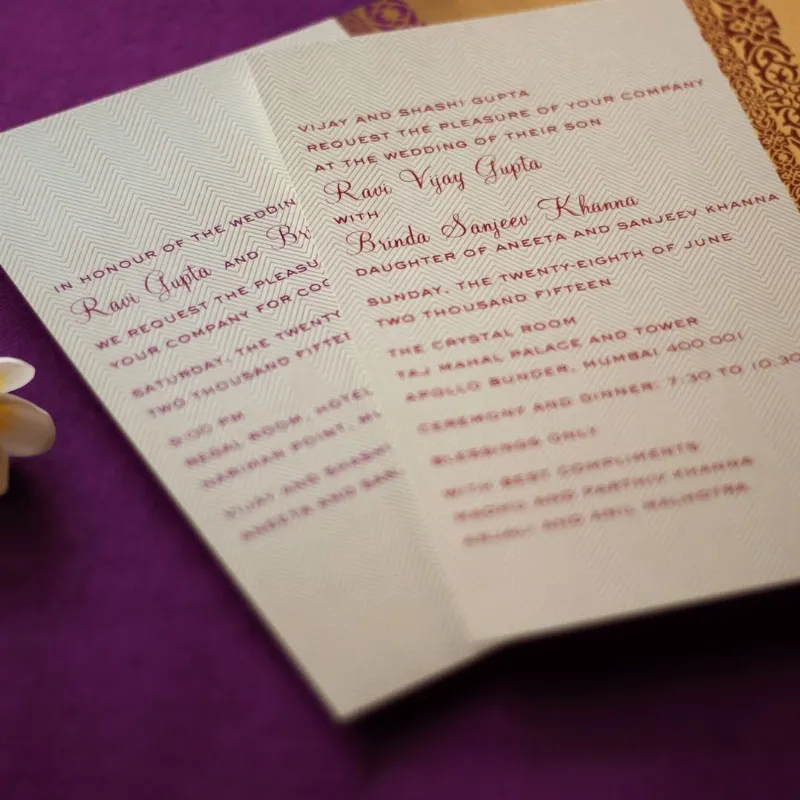 VIJAY AND SHASHI GUPTA
REQUEST THE PLEASURE OF YOUR COMPANY
AT THE WEDDING OF THEIR SON
Ravi Vijay Gupta
WITH
Brinda Sanjeev Khanna
DAUGHTER OF ANEETA AND SANJEEV KHANNA
SUNDAY, THE TWENTY-EIGHTH OF JUNE
TWO THOUSAND FIFTEEN
THE CRYSTAL ROOM
TAJ MAHAL PALACE AND TOWER
APOLLO BUNDER, MUMBAI 400 001
CEREMONY AND DINNER: 7:30 TO 10:30
BLESSINGS ONLY
WITH BEST COMPLIMENTS
AND PARTHIV KHANNA
AND ANIL MALHOTRA
IN HONOUR OF THE WEDDIN
Ravi Gupta AND Br
WE REQUEST THE PLEASU
YOUR COMPANY FOR COC
SATURDAY, THE TWENTY
TWO THOUSAND FIFTEE
PM
REGAL ROOM, HOTEL
NARIMAN POINT, M
VIJAY AND SHASHI
ANEETA AND SAN